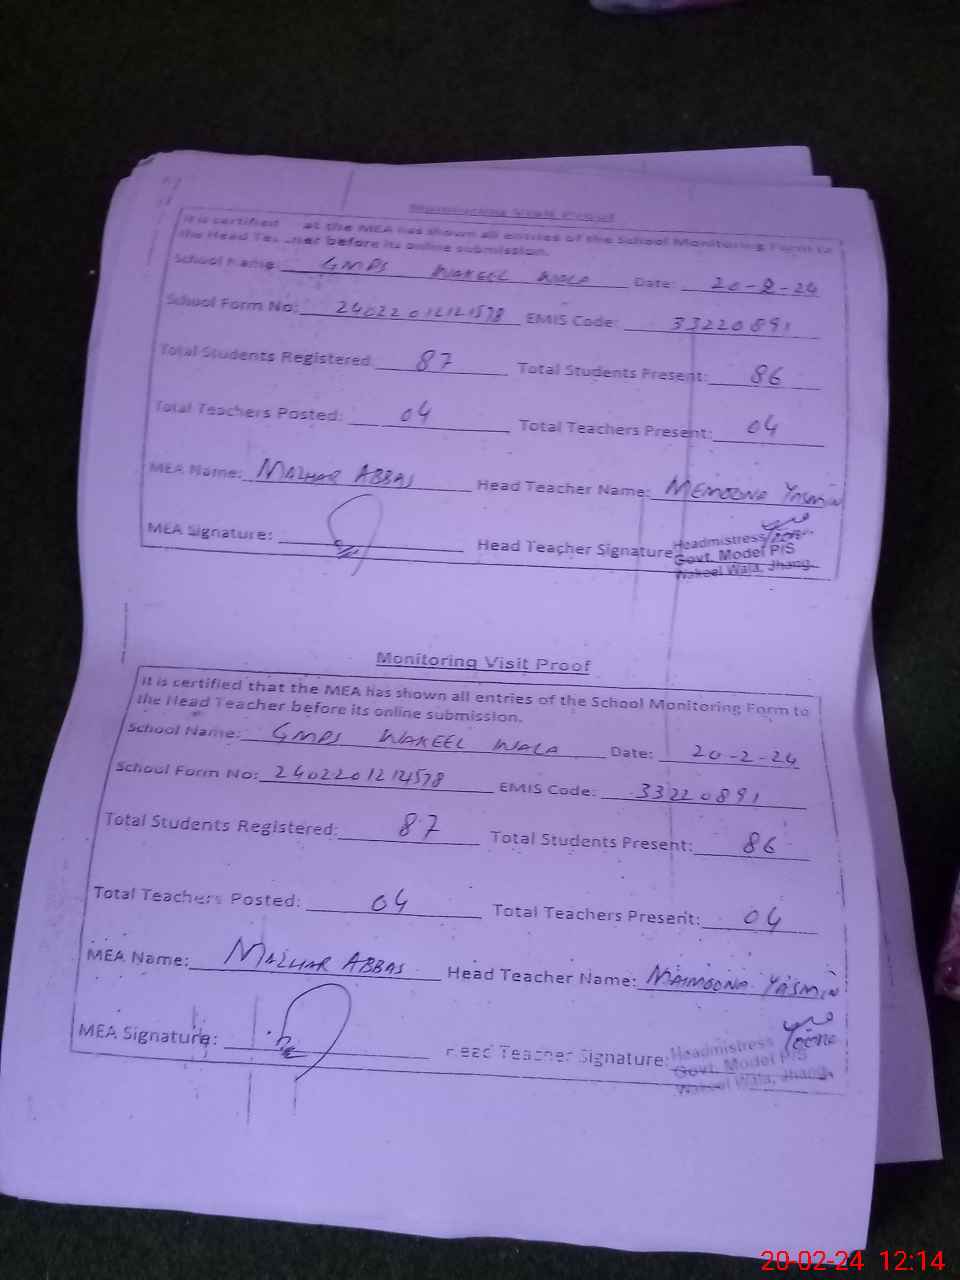 Monitoring Visit Proof
It is certified at the MEA has shown all entries of the School Monitoring Form to
the Head before its online submission.
School Name: GMPS WAKEEL WALA Date: 20-2-24
School Form No: 24022012121578 EMIS Code: 33220891
Total Students Registered: 87 Total Students Present: 86
Total Teachers Posted: 04 Total Teachers Present: 04
MEA Name: MAZHAR ABBAS Head Teacher Name: MEMOONA YASMIN
MEA Signature: Head Teacher Signature
Headmistress
Govt. Model P/S
Wakeel Wala, Jhang.
Monitoring Visit Proof
It is certified that the MEA has shown all entries of the School Monitoring Form to
the Head Teacher before its online submission.
School Name: GMPS WAKEEL WALA Date: 20-2-24
School Form No: 24022012121578 EMIS Code: 33220891
Total Students Registered: 87 Total Students Present: 86
Total Teachers Posted: 04 Total Teachers Present: 04
MEA Name: MAZHAR ABBAS Head Teacher Name: MAIMOONA YASMIN
MEA Signature: Head Teacher Signature:
Headmistress
Govt. Model P/S
Wakeel Wala, Jhang.
20-02-24 12:14